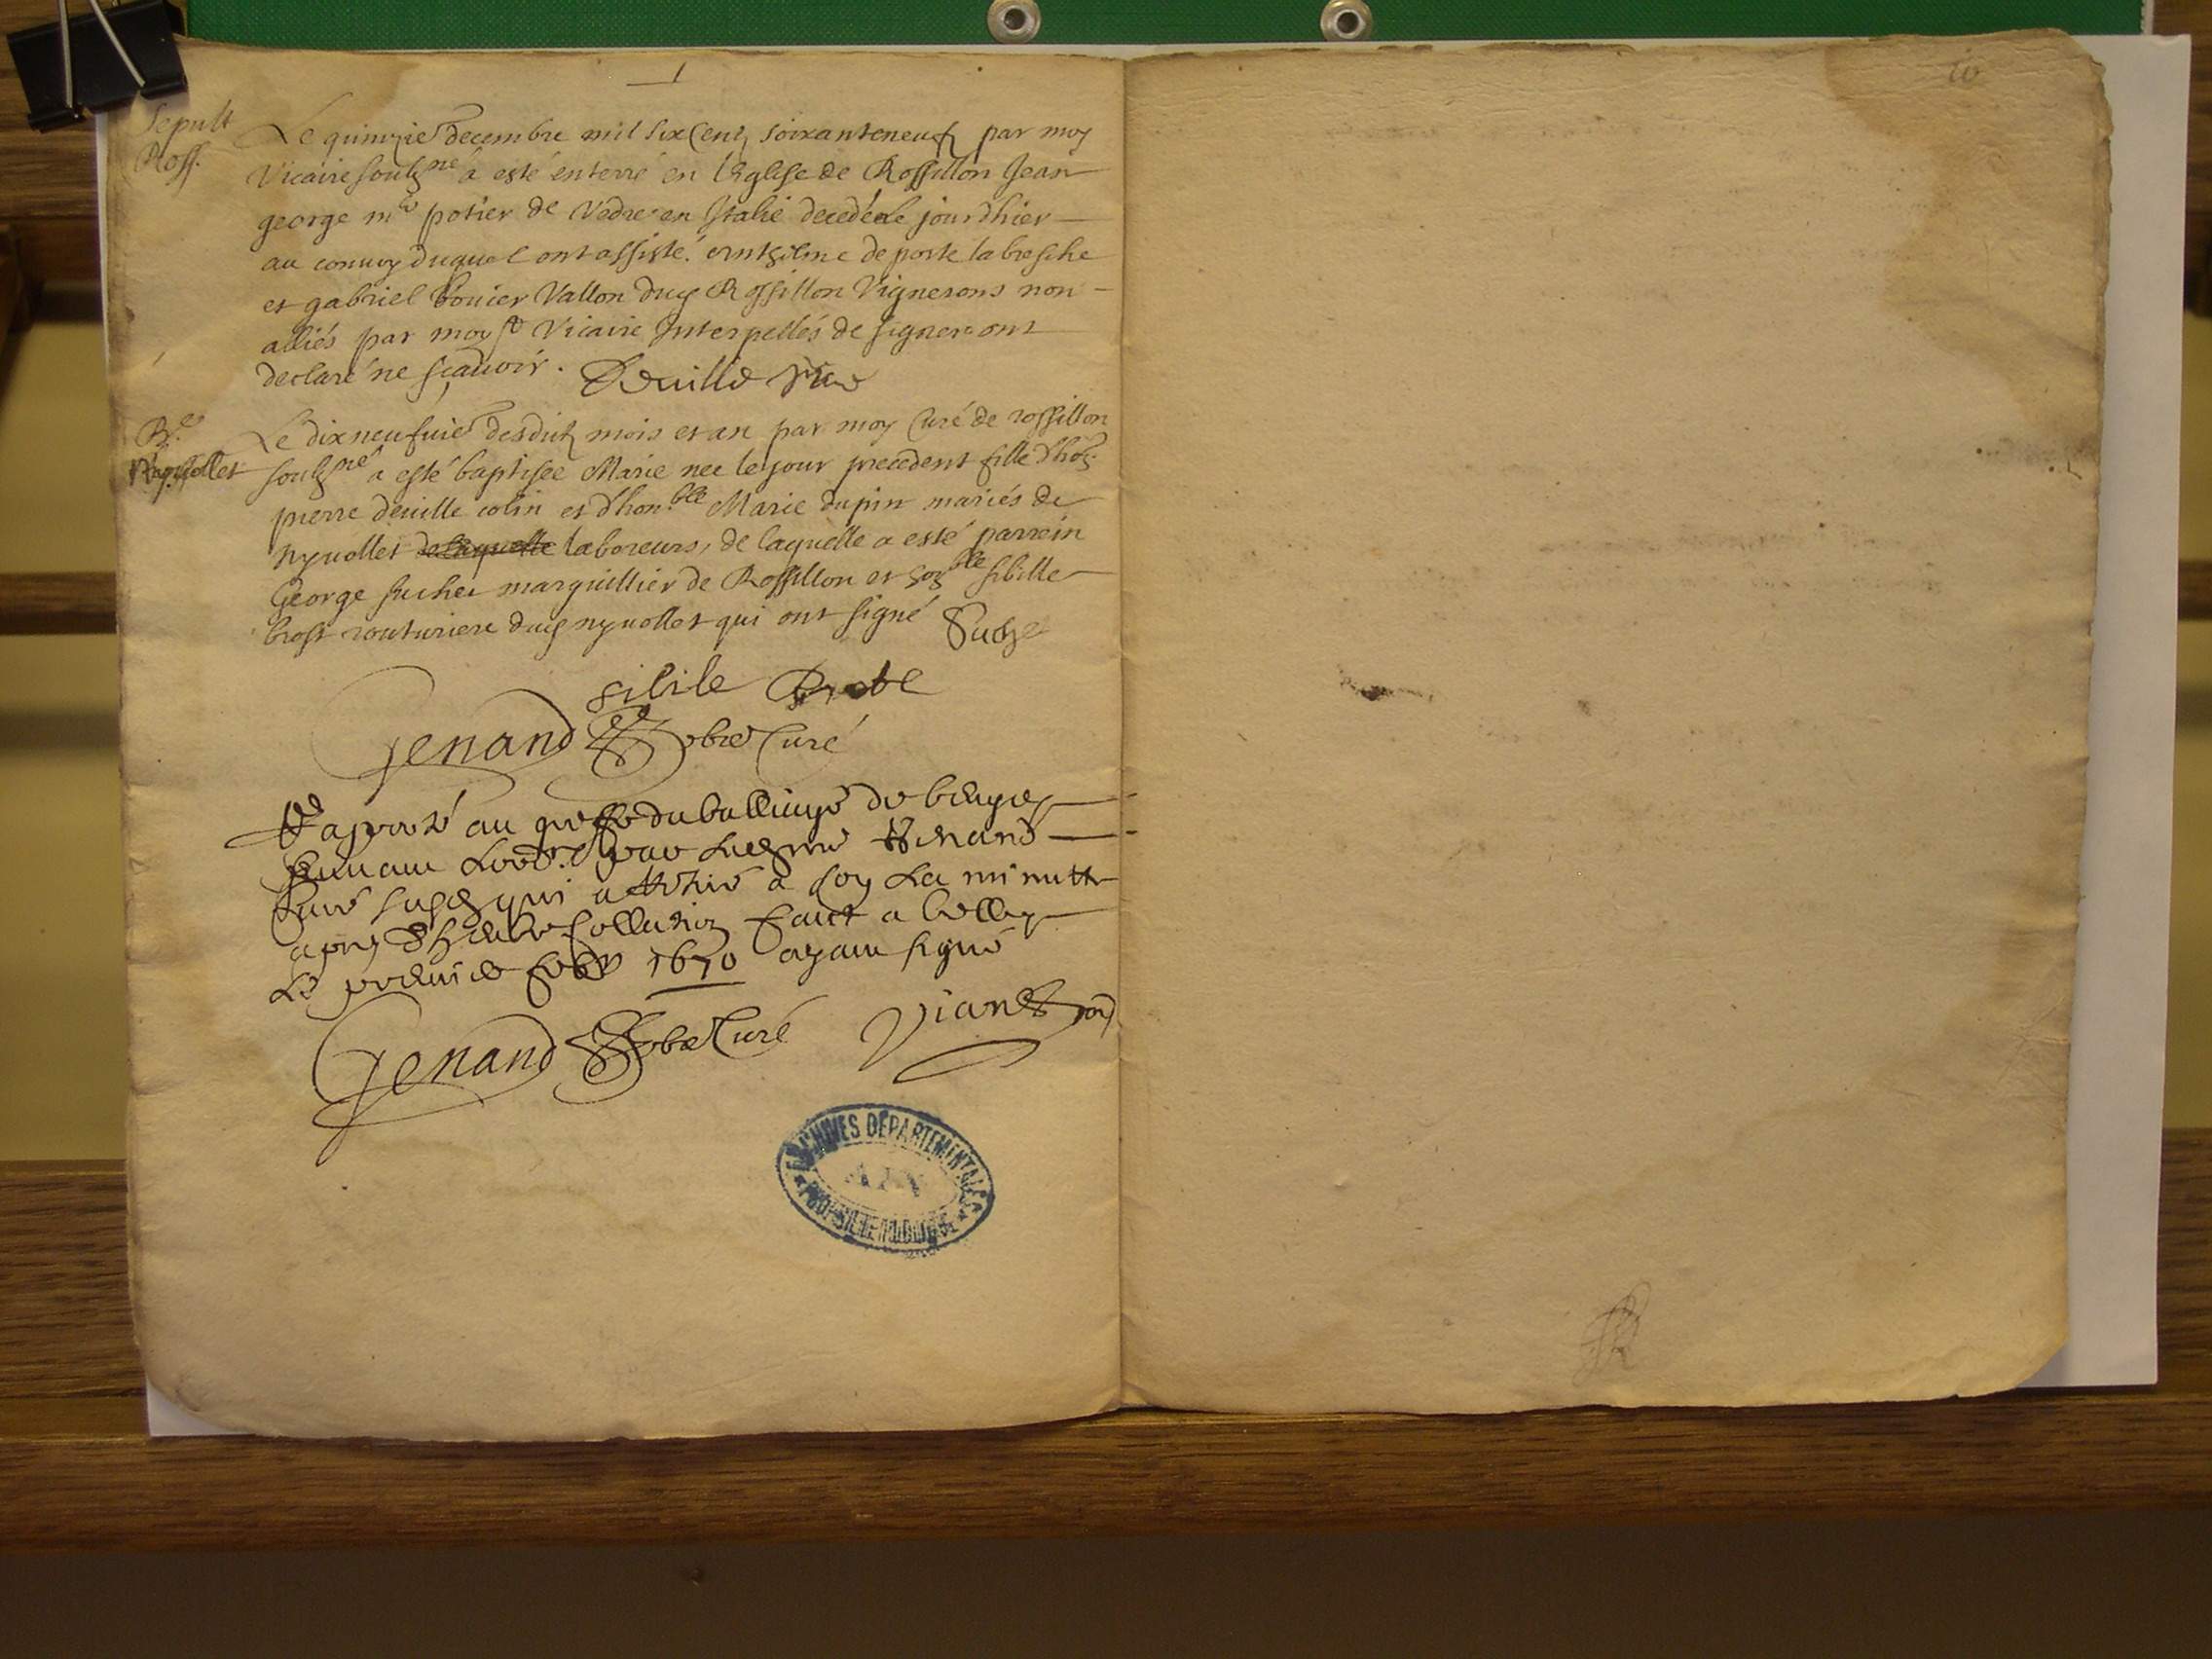 Sepult
Ross.
Le quinzie decembre mil six centz soixanteneufz par moy
Vicaire soubzne a esté enterré en l'Eglise de Rossillon Jean
george me potier de Vedre en Italie decedé le jour d'hier
au convoy duquel ont assisté de porte labresche
et gabriel bouier Vallon duy Rossillon Vignerons non
alliés par moy st Vicaire Interpellés de signer ont
declaré ne scavoir. Deville Vicre
Be
Nyvollet
Le dixneufuie desditz mois et an par moy Curé de rossillon
soubzné a esté baptisee Marie nee le jour precedent fille d'hon.
pierre deville colin et d'hon.ble Marie dupin mariés de
nyvollet delaquelle laboreurs, de laquelle a esté parrein
George suchet marguillier de Rossillon et honble sibille
brost routuriere duy nyvollet qui ont signé Suche
sibile
Genand pbre Curé
au greffe du balliage de beugey
par Genand
Curé qui a retiré a soy La minutte
apres Collation faict a belley
Le febv 1670 ayant signé
Genand pbre Curé
ARCHIVES DÉPARTEMENTALES
AIN
PROPRIÉTÉ PUBLIQUE